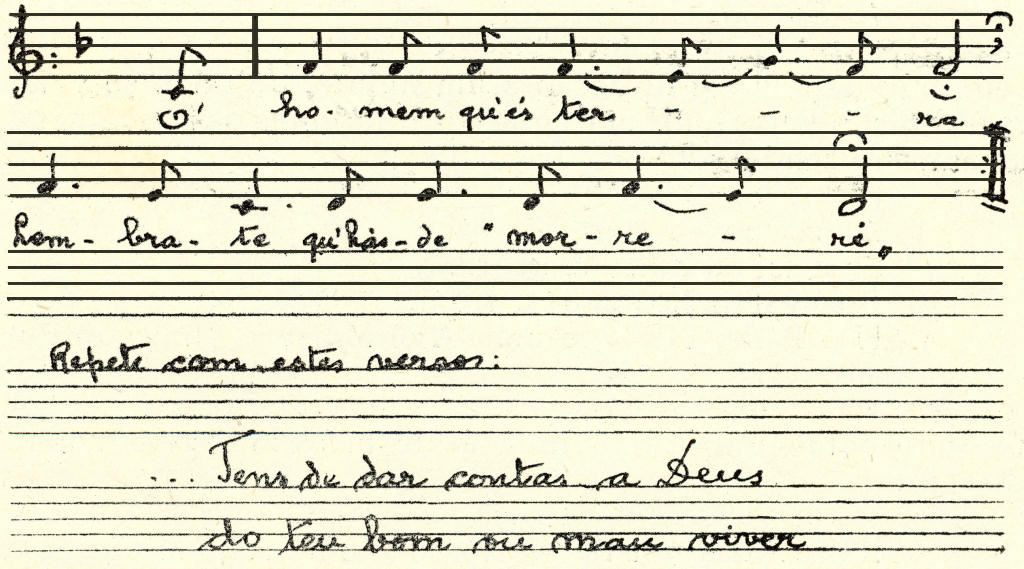 Ó ho- mem qu'és ter - - - ra
Lem- bra- te qu'hás-de "mor-re - ri„
Repete com estes versos:
... Tens de dar contas a Deus
do teu bom ou mau viver